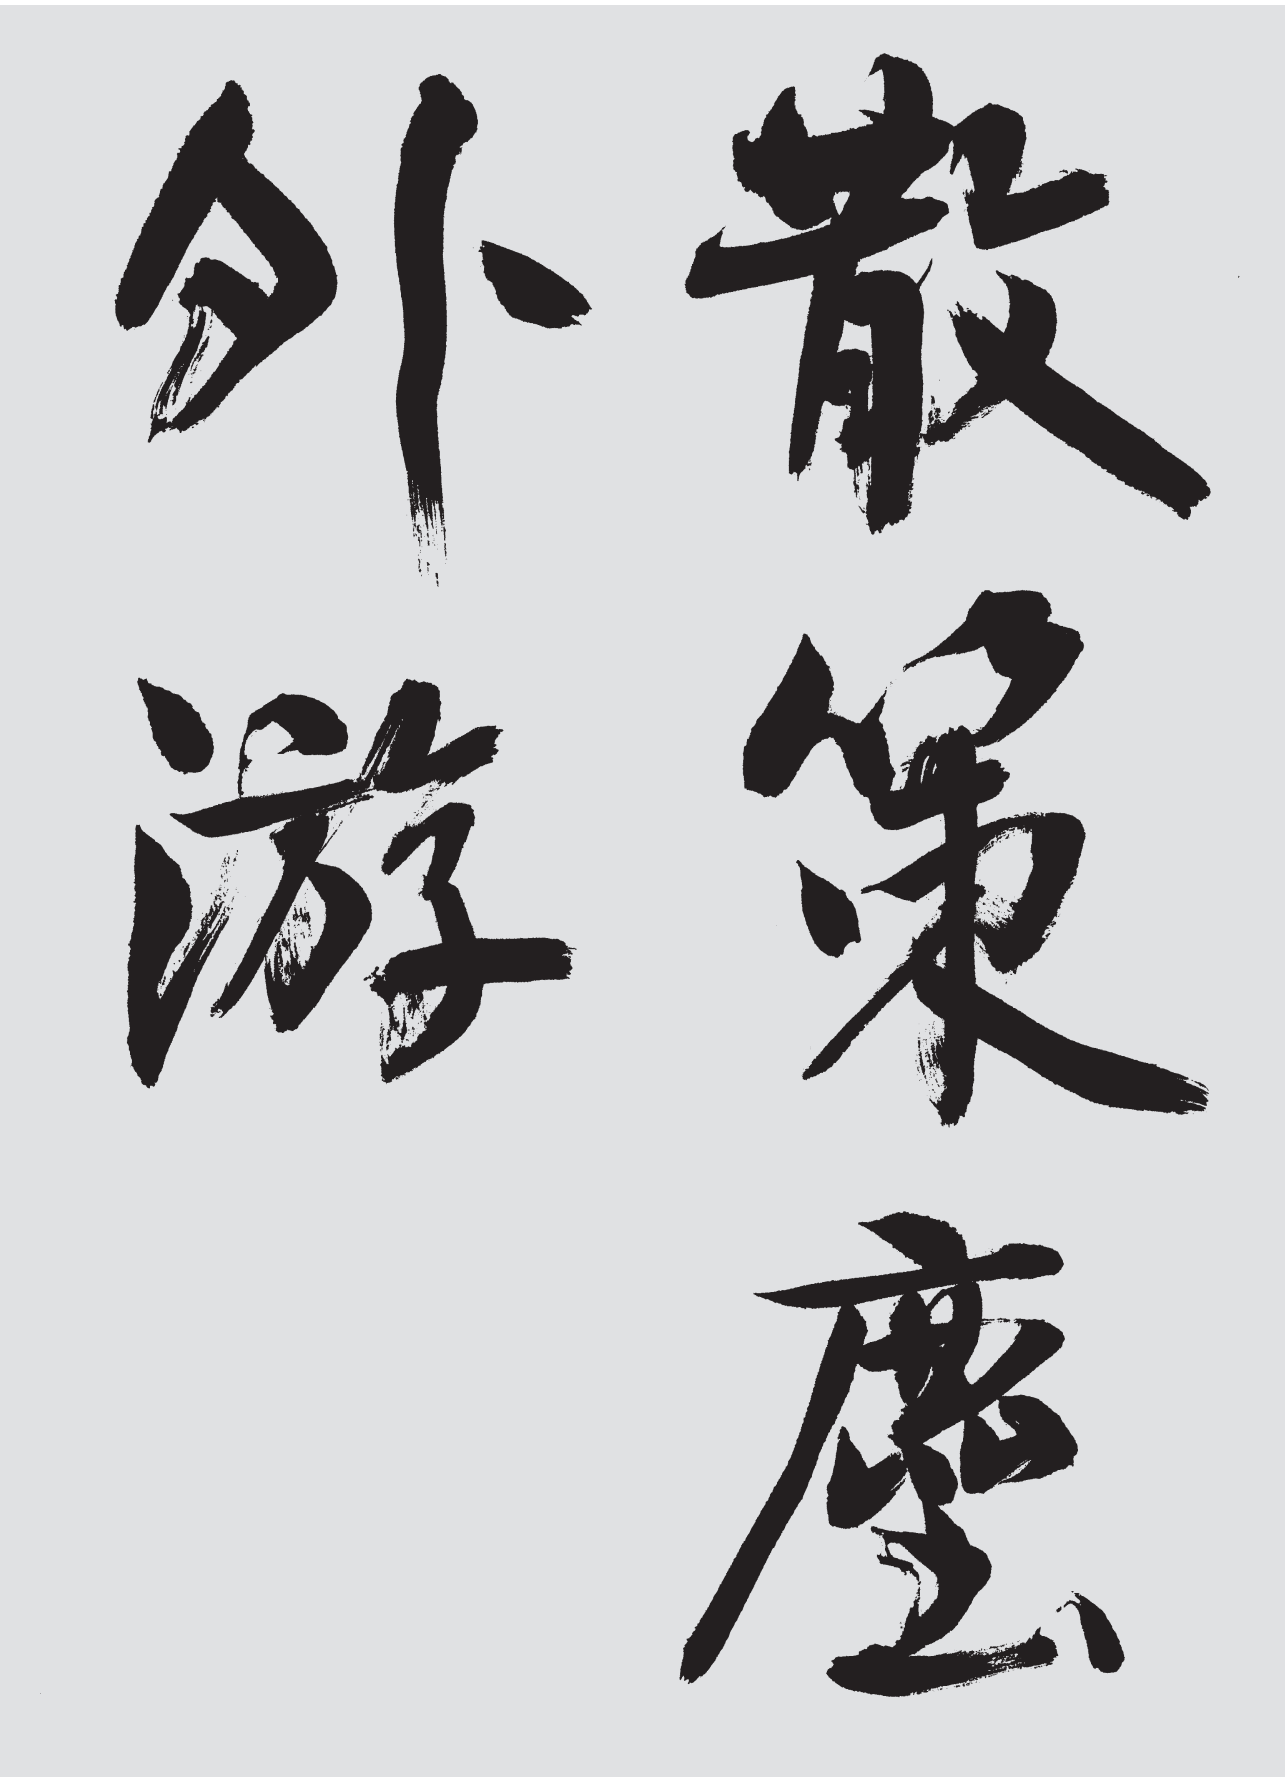 散策塵
外游